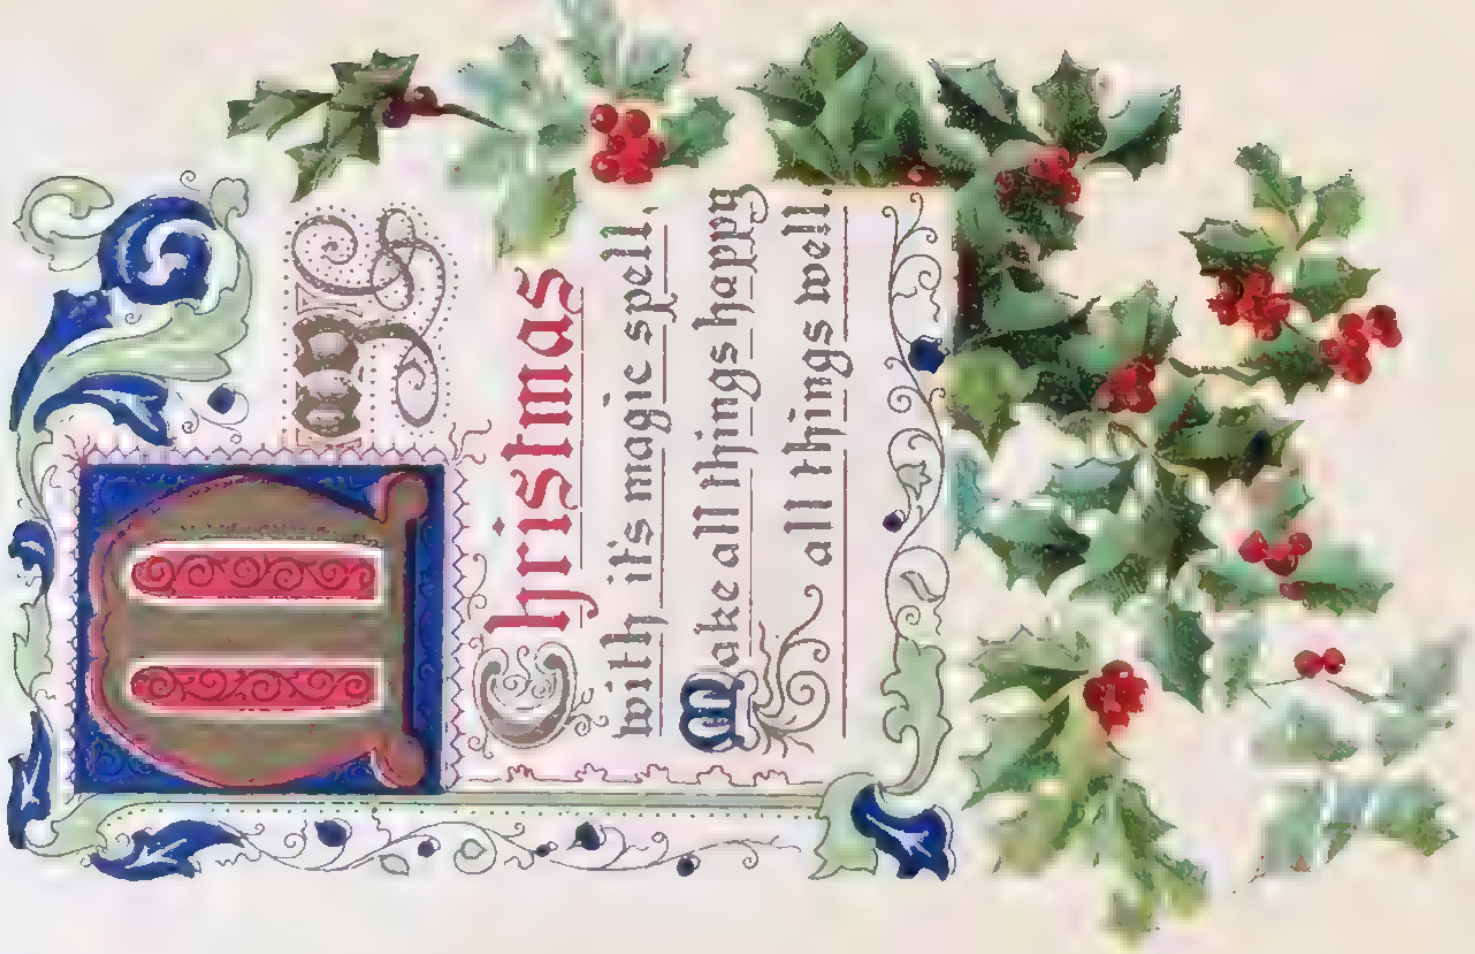 May
Christmas
with it's magic spell,
Make all things happy
all things well.